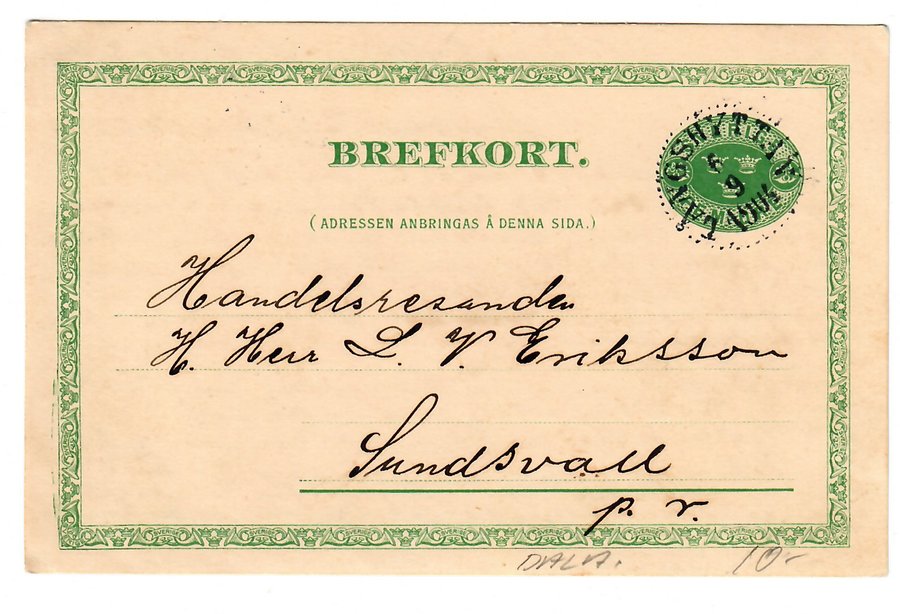 BREFKORT.
(ADRESSEN ANBRINGAS Å DENNA SIDA.)
Handelsresanden
H. Herr L. V. Eriksson
Sundsvall
p. r.
DALA. 10-